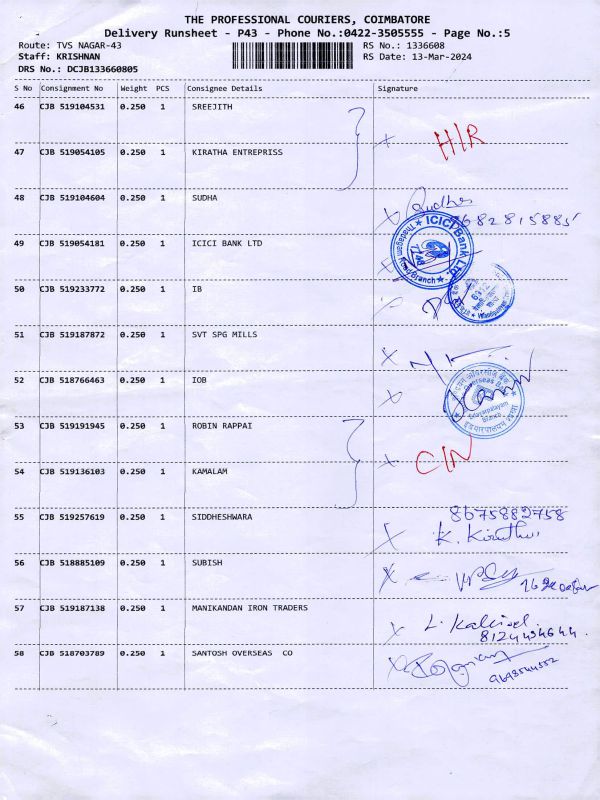 THE PROFESSIONAL COURIERS, COIMBATORE
Delivery Runsheet - P43 - Phone No.:0422-3505555 - Page No.:5
Route: TVS NAGAR-43 RS No.: 1336608
Staff: KRISHNAN RS Date: 13-Mar-2024
DRS No.: DCJB133660805
S No Consignment No Weight PCS Consignee Details Signature
46 CJB 519104531 0.250 1 SREEJITH
H/R
47 CJB 519054105 0.250 1 KIRATHA ENTREPRISS
48 CJB 519104604 0.250 1 SUDHA Sudha
9682815885
49 CJB 519054181 0.250 1 ICICI BANK LTD
ICICI Bank Ltd.
Branch
50 CJB 519233772 0.250 1 IB
51 CJB 519187872 0.250 1 SVT SPG MILLS
52 CJB 518766463 0.250 1 IOB
Overseas Bank
Edayarpalayam
Branch
53 CJB 519191945 0.250 1 ROBIN RAPPAI
C/N
54 CJB 519136103 0.250 1 KAMALAM
55 CJB 519257619 0.250 1 SIDDHESHWARA 8675882758
K.
56 CJB 518885109 0.250 1 SUBISH
57 CJB 519187138 0.250 1 MANIKANDAN IRON TRADERS L.
58 CJB 518703789 0.250 1 SANTOSH OVERSEAS CO